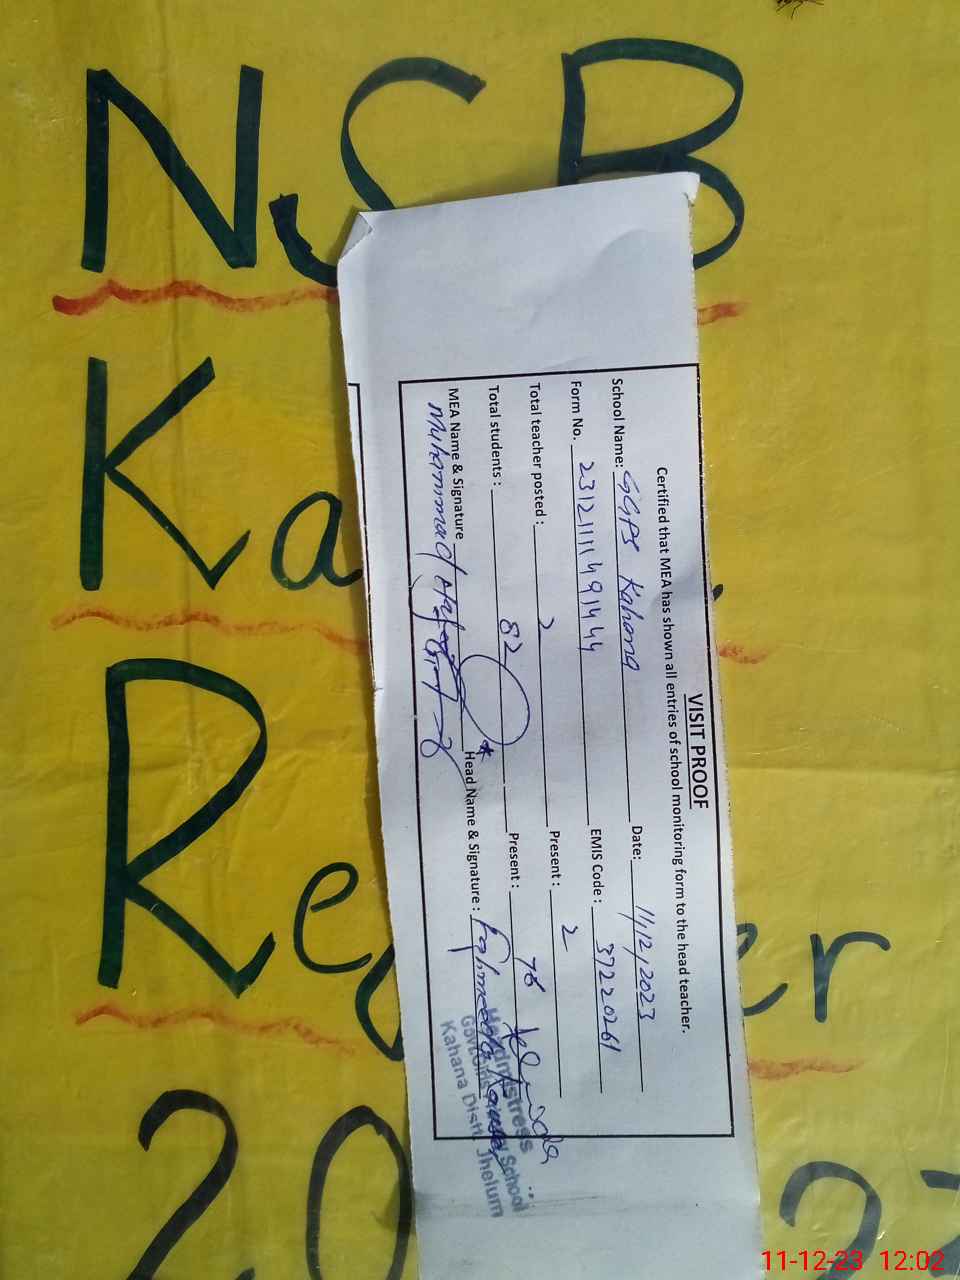 NSB
Ka
Re er
20
VISIT PROOF
Certified that MEA has shown all entries of school monitoring form to the head teacher.
School Name: GGPS Kahana Date: 11/12/2023
Form No. 23121111491444 EMIS Code: 37220261
Total teacher posted: 2 Present: 2
Total students: 82 Present: 78
MEA Name & Signature Head Name & Signature:
Muhammad Fahmeeda Kausar
Headmistress
Govt. Girls School
Kahana Distt. Jhelum
11-12-23 12:02